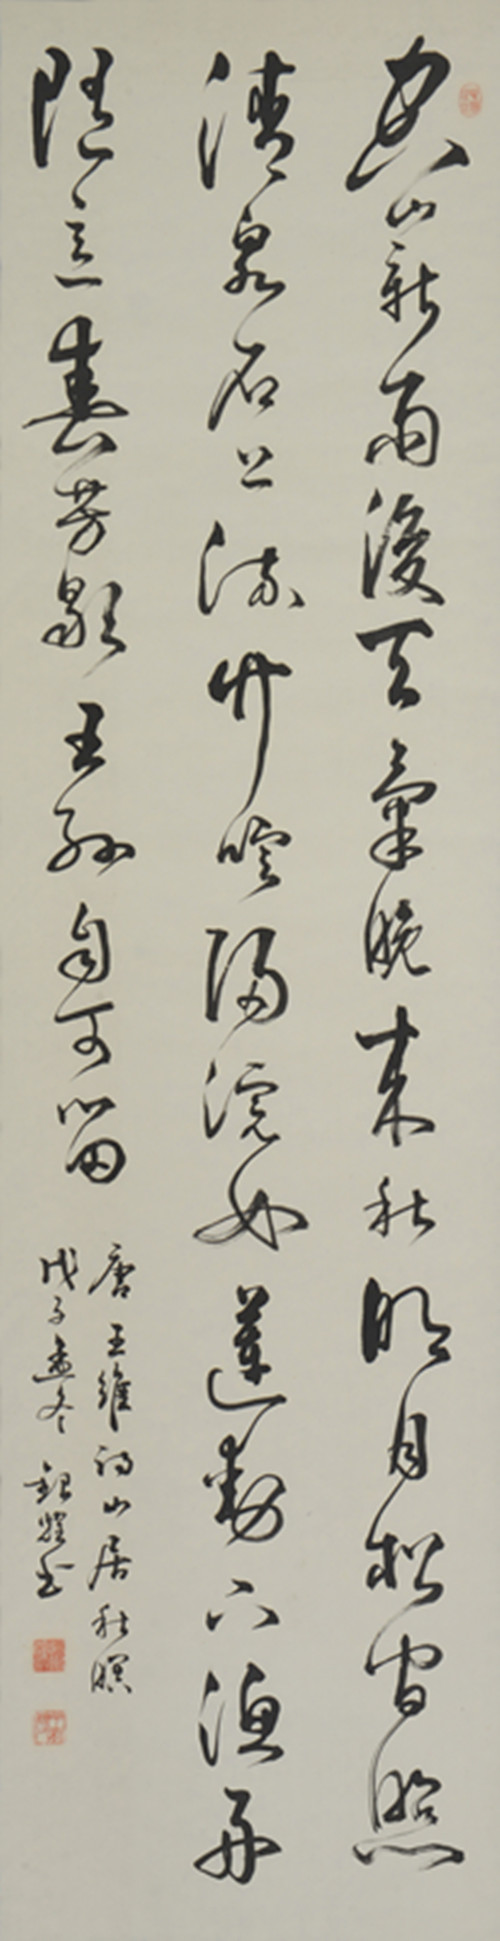 空山新雨後天氣晚來秋明月松間照
清泉石上流竹喧歸浣女蓮動下漁舟
隨意春芳歇王孫自可留
唐王維詩山居秋暝
戊子孟冬 書